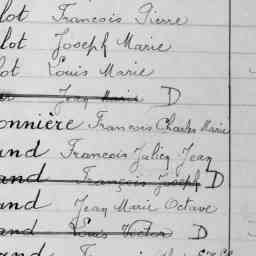 lot François Pierre
lot Joseph Marie
lot Louis Marie
er Jean Marie D
onnière Francois Charles Marie
and Francois Julien Jean
and François Joseph D
and Jean Marie Octave
and Louis Victor D
and